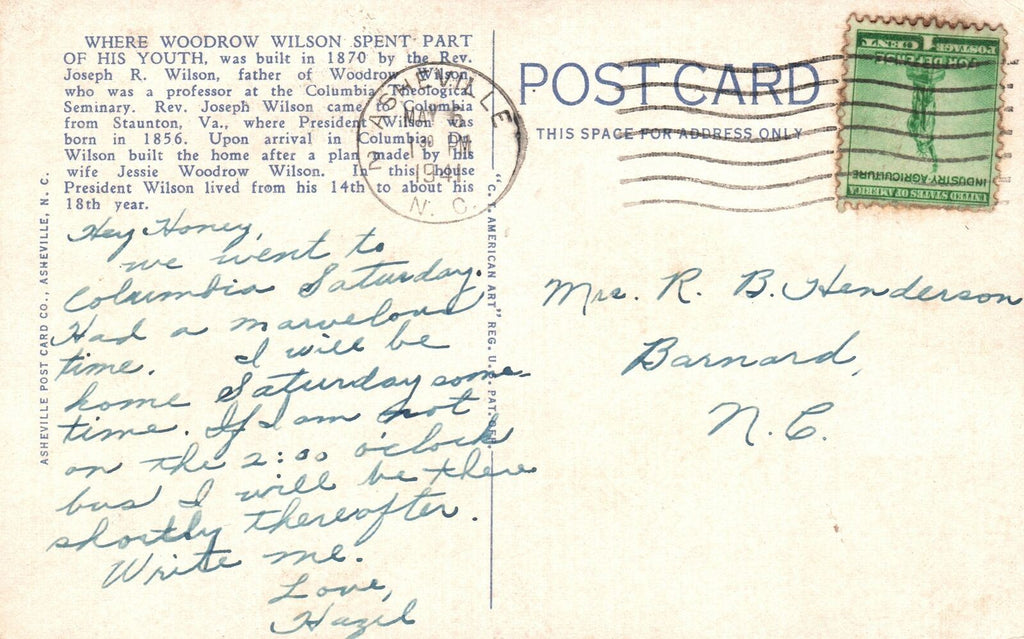 WHERE WOODROW WILSON SPENT PART
OF HIS YOUTH, was built in 1870 by the Rev.
Joseph R. Wilson, father of Woodrow Wilson,
who was a professor at the Columbia Theological
Seminary. Rev. Joseph Wilson came to Columbia
from Staunton, Va., where President Wilson was
born in 1856. Upon arrival in Columbia Dr.
Wilson built the home after a plan made by his
wife Jessie Woodrow Wilson. In this house
President Wilson lived from his 14th to about his
18th year.
Hey Honey,
we went to
Columbia Saturday.
Had a marvelous
time. I will be
home Saturday some-
time. If I am not
on the 2:00 o'clock
bus I will be there
shortly thereafter.
Write me.
Love,
Hazel
ASHEVILLE POST CARD CO., ASHEVILLE, N. C.
"C. T. AMERICAN ART" REG. U. S. PAT. OFF.
ASHEVILLE
2
MAY 5
30 PM
1941
N. C.
POST CARD
THIS SPACE FOR ADDRESS ONLY
UNITED STATES OF AMERICA
INDUSTRY·AGRICULTURE
FOR DEFENSE
POSTAGE 1 CENT
Mrs. R. B. Henderson
Barnard,
N. C.